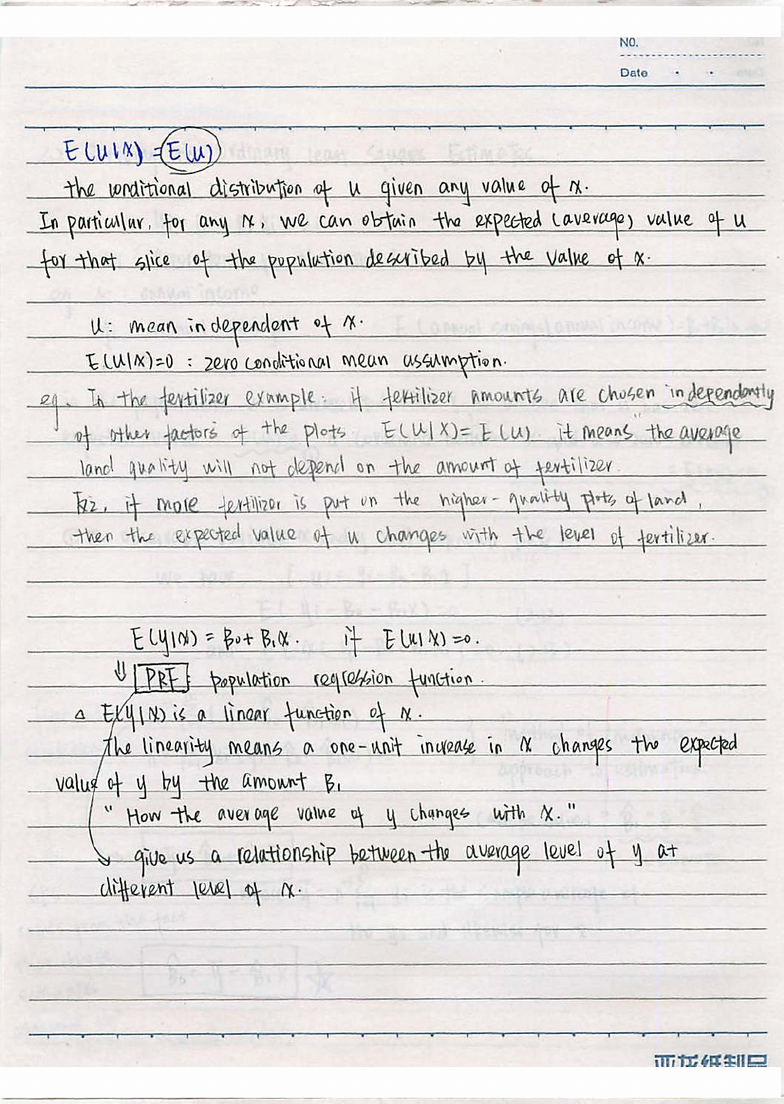 NO.
Date
E(u|x) = E(u)
the conditional distribution of u given any value of x.
In particular, for any x, we can obtain the expected (average) value of u
for that slice of the population described by the value of x.
u: mean independent of x.
E(u|x)=0 : zero conditional mean assumption.
eg. In the fertilizer example. if fertilizer amounts are chosen independantly
of other factors of the plots E(u|x) = E(u). it means "the average
land quality will not depend on the amount of fertilizer.
, if more fertilizer is put on the higher-quality plots of land,
then the expected value of u changes with the level of fertilizer.
E(y|x) = B0 + B1x. if E(u|x)=0.
⇓ PRF: population regression function.
△ E(y|x) is a linear function of x.
The linearity means a one-unit increase in x changes the expected
value of y by the amount B1
" How the average value of y changes with x."
give us a relationship between the average level of y at
different level of x.
亚龙纸制品